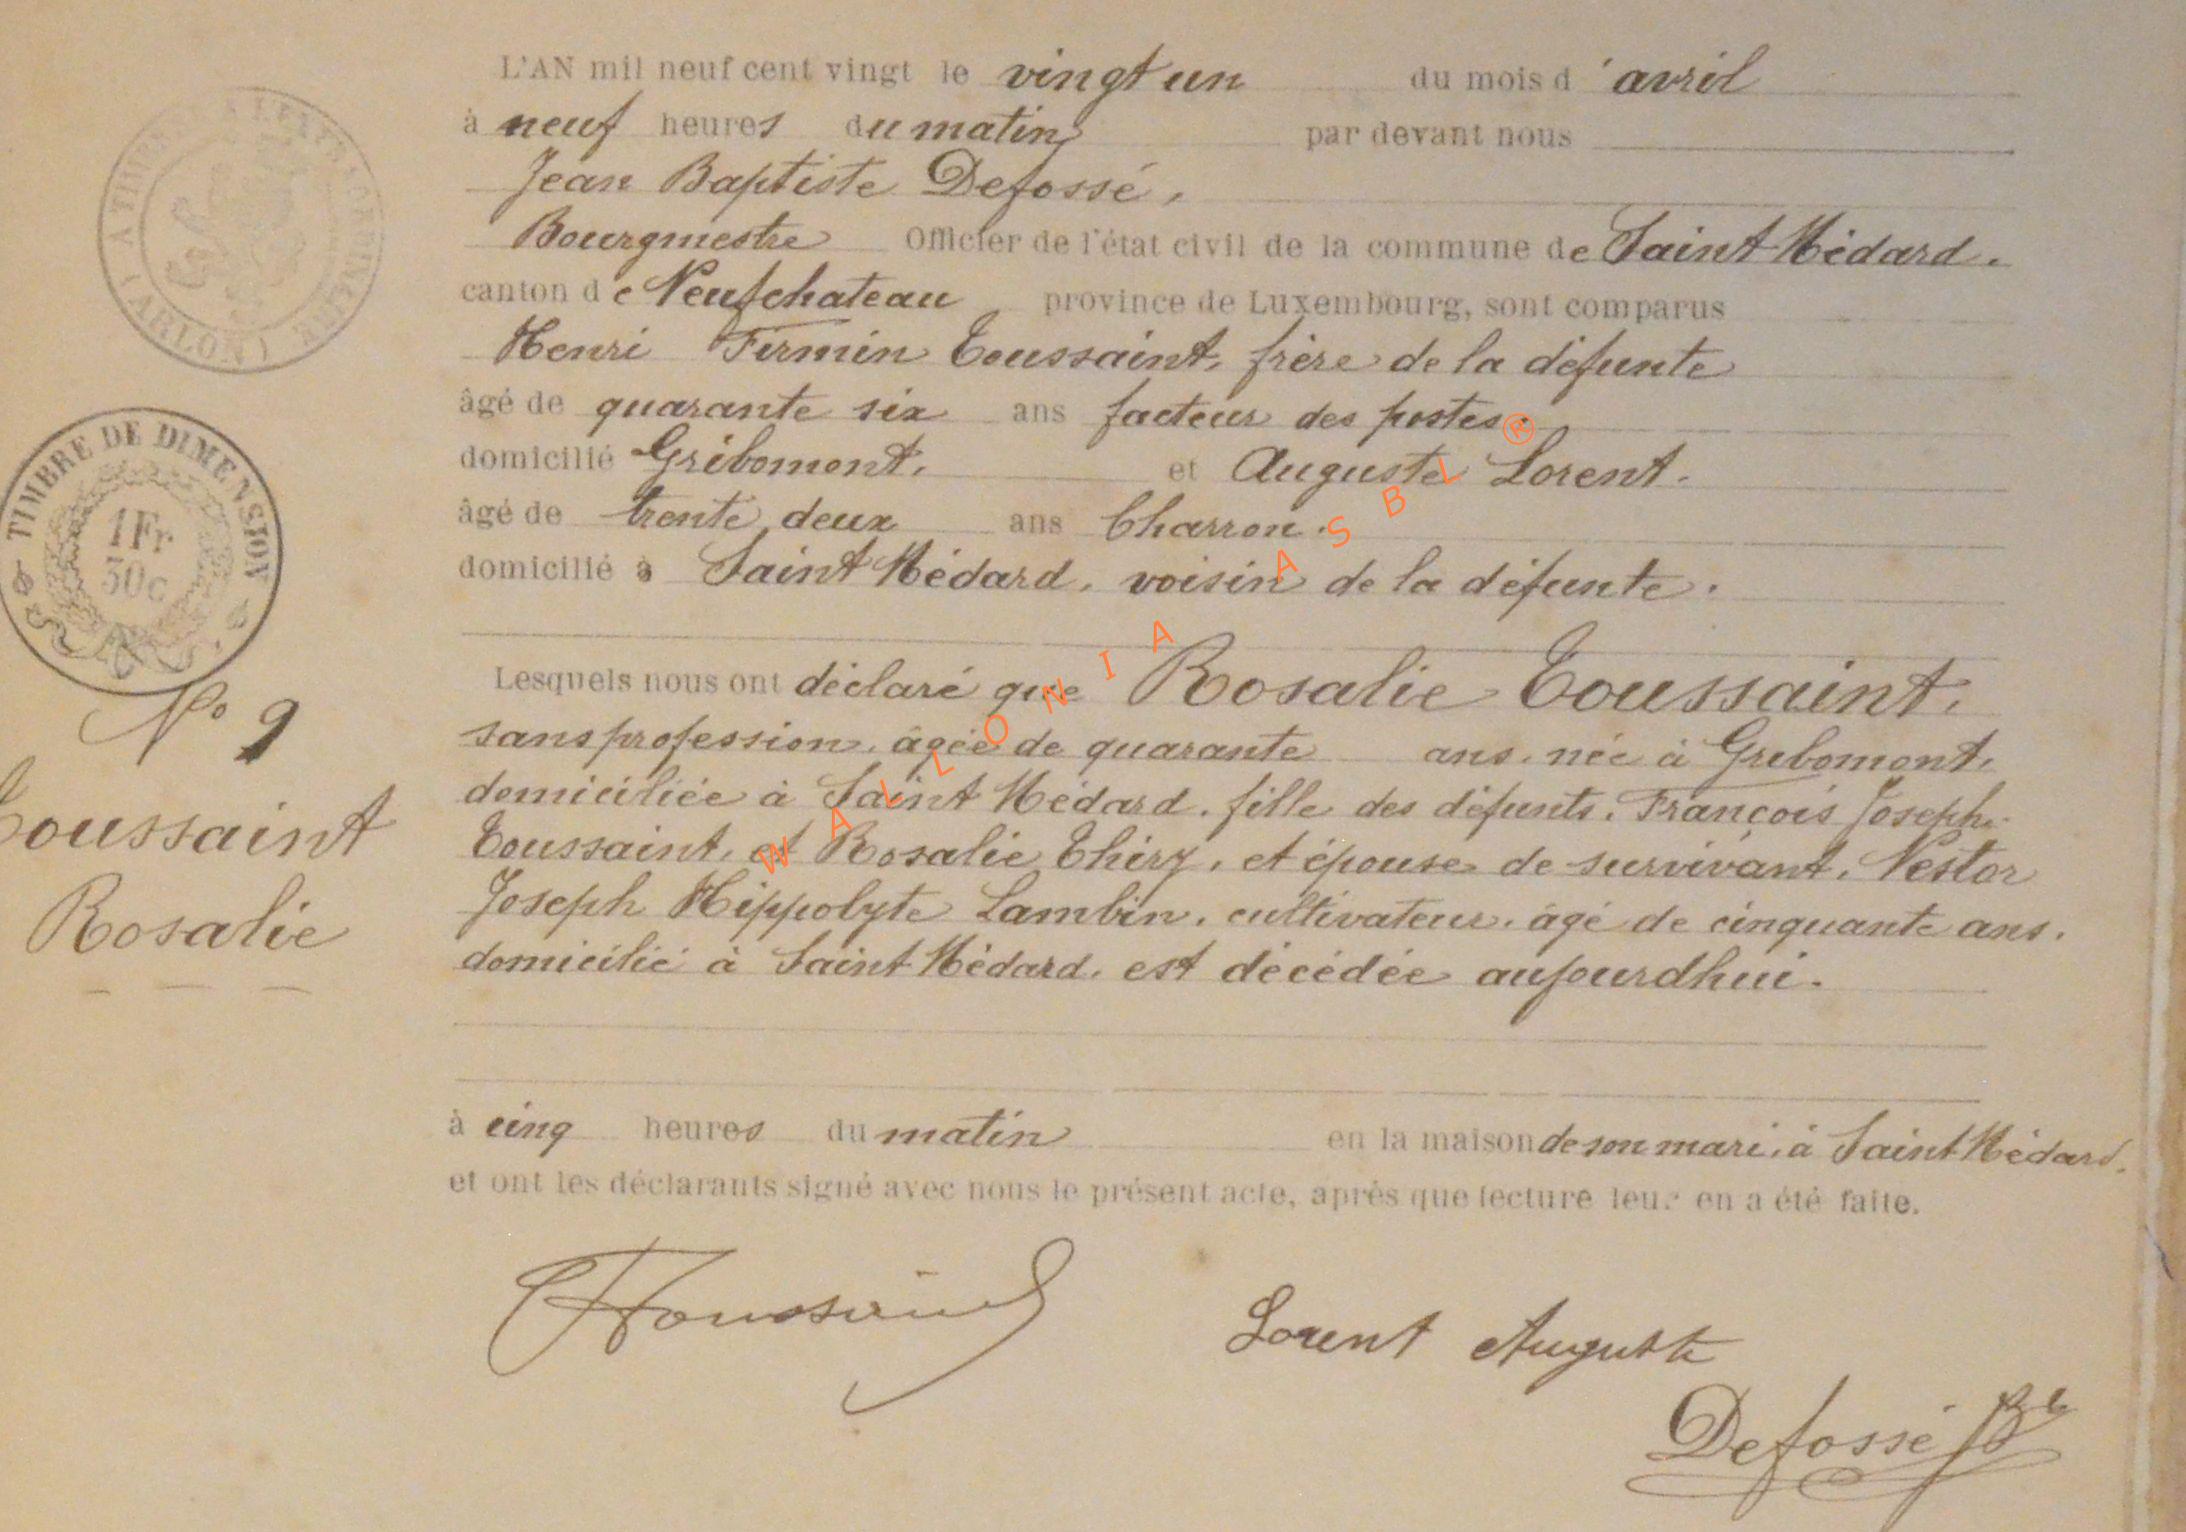 L'AN mil neuf cent vingt le vingt un du mois d'avril
à neuf heures du matin par devant nous
Jean Baptiste Defossé,
Bourgmestre Officier de l'état civil de la commune de Saint Médard.
canton de Neufchateau province de Luxembourg, sont comparus
Henri Firmin Toussaint, frère de la défunte
âgé de quarante six ans facteur des postes.
domicilié Gribomont, et Auguste Lorent.
âgé de trente deux ans Charron.
domicilié à Saint Médard, voisin de la défunte.
Lesquels nous ont déclaré que Rosalie Toussaint,
sans profession, âgée de quarante ans, née à Grebomont,
domiciliée à Saint Médard, fille des défunts, François Joseph
Toussaint, et Rosalie Thiry, et épouse de survivant, Nestor
Joseph Hippolyte Lambin, cultivateur, âgé de cinquante ans,
domicilié à Saint Médard, est décédée aujourdhui.
à cinq heures du matin en la maison de son mari, à Saint Médard.
et ont les déclarants signé avec nous le présent acte, après que lecture leur en a été faite.
Toussaint
Lorent Auguste
Defossé JB
A L'EXTRAORDINAIRE
(ARLON)
TIMBRE DE DIMENSION
1Fr
30c
N° 9
Toussaint
Rosalie
WALLONIA ASBL ®